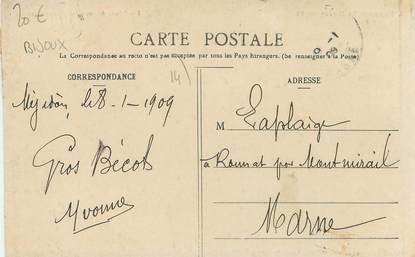 20 €
BIJOUX
CARTE POSTALE
La Correspondance au recto n'est pas acceptée par tous les Pays étrangers. (Se renseigner à la Poste)
CORRESPONDANCE
14
ADRESSE
le 8-1-1909
M Laplaige
Gros Bécots
à par Montmirail
Yvonne
Marne